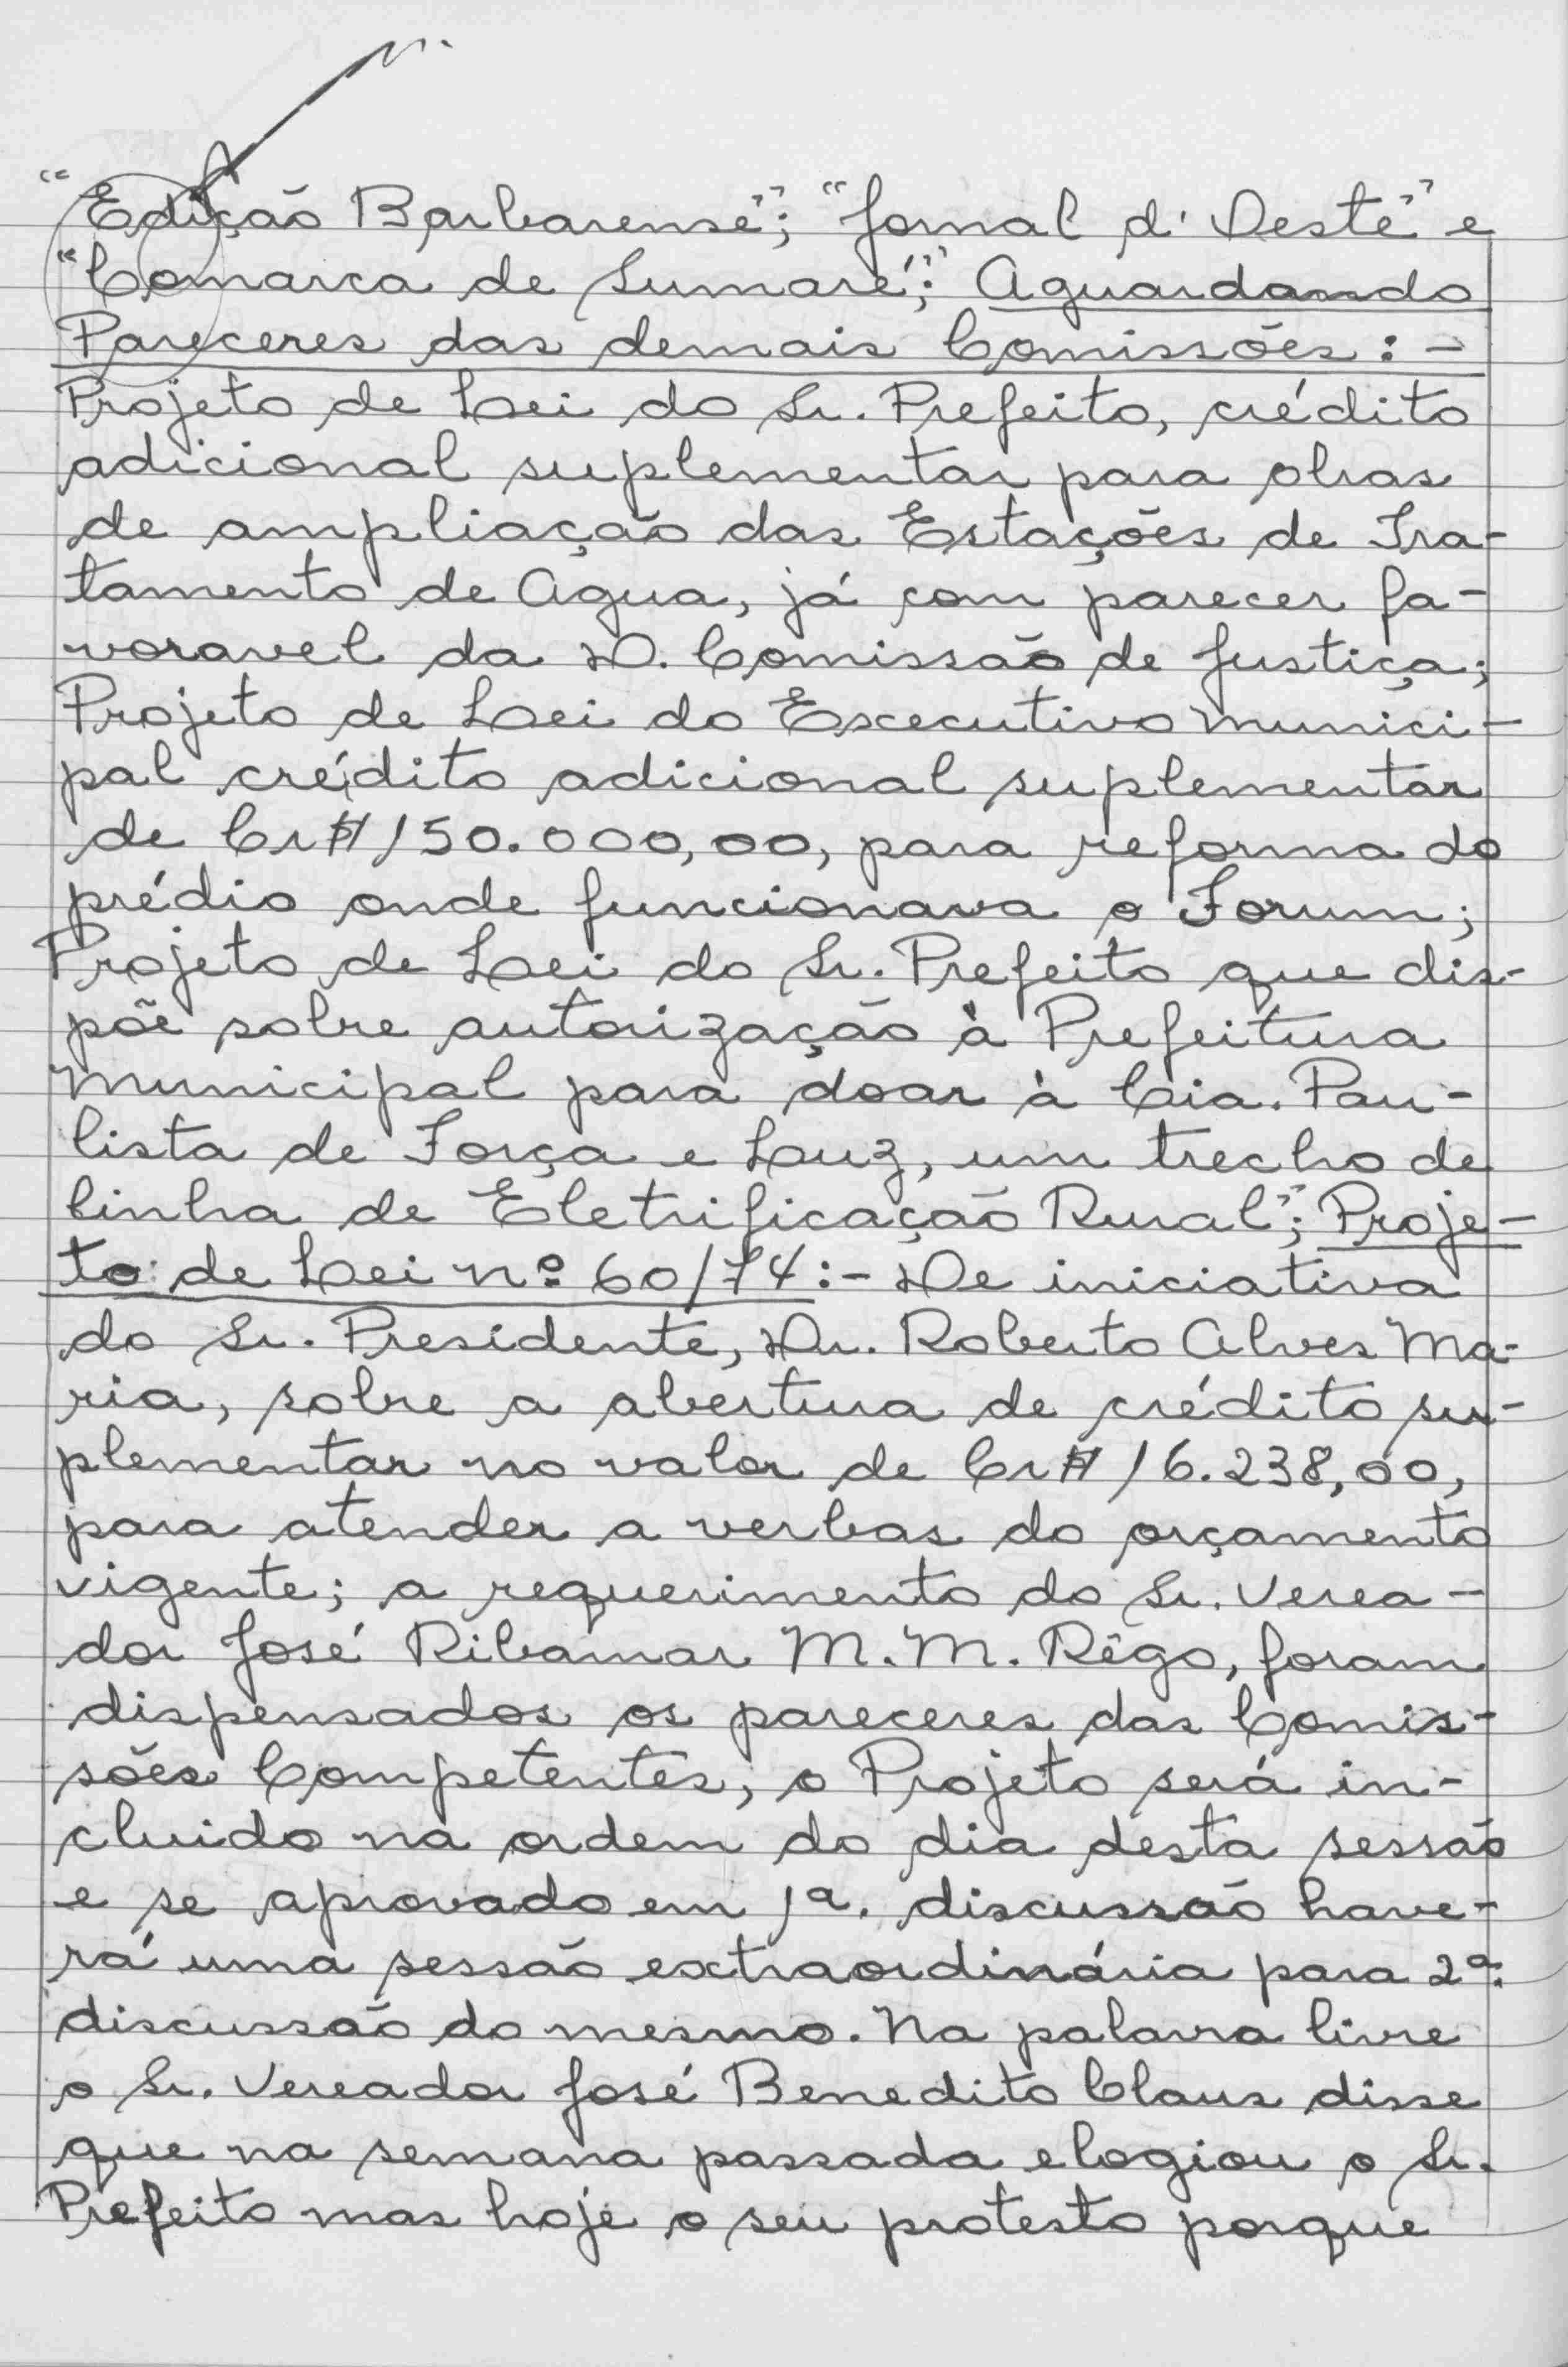 "Edição Barbarense"; "Jornal d'Oeste" e
"Comarca de Sumaré"; Aguardando
Pareceres das demais Comissões: -
Projeto de Lei do Sr. Prefeito, crédito
adicional suplementar para obras
de ampliação das Estações de Tra-
tamento de Agua, já com parecer fa-
voravel da D. Comissão de Justiça;
Projeto de Lei do Executivo Munici-
pal crédito adicional suplementar
de Cr$150.000,00, para reforma do
prédio onde funcionava o Forum;
Projeto de Lei do Sr. Prefeito que dis-
põe sobre autorização à Prefeitura
Municipal para doar à Cia. Pau-
lista de Força e Luz, um trecho de
linha de Eletrificação Rural"; Proje-
to de Lei nº 60/74:- De iniciativa
do Sr. Presidente, Dr. Roberto Alves Ma-
ria, sobre a abertura de crédito su-
plementar no valor de Cr$ 16.238,00,
para atender a verbas do orçamento
vigente; a requerimento do Sr. Verea-
dor José Ribamar M. M. Rêgo, foram
dispensados os pareceres das Comis-
sões Competentes, o Projeto será in-
cluido na ordem do dia desta sessão
e se aprovado em 1ª. discussão have-
rá uma sessão extraordinária para 2ª.
discussão do mesmo. Na palavra livre
o Sr. Vereador José Benedito Claus disse
que na semana passada elogiou o Sr.
Prefeito mas hoje o seu protesto porque